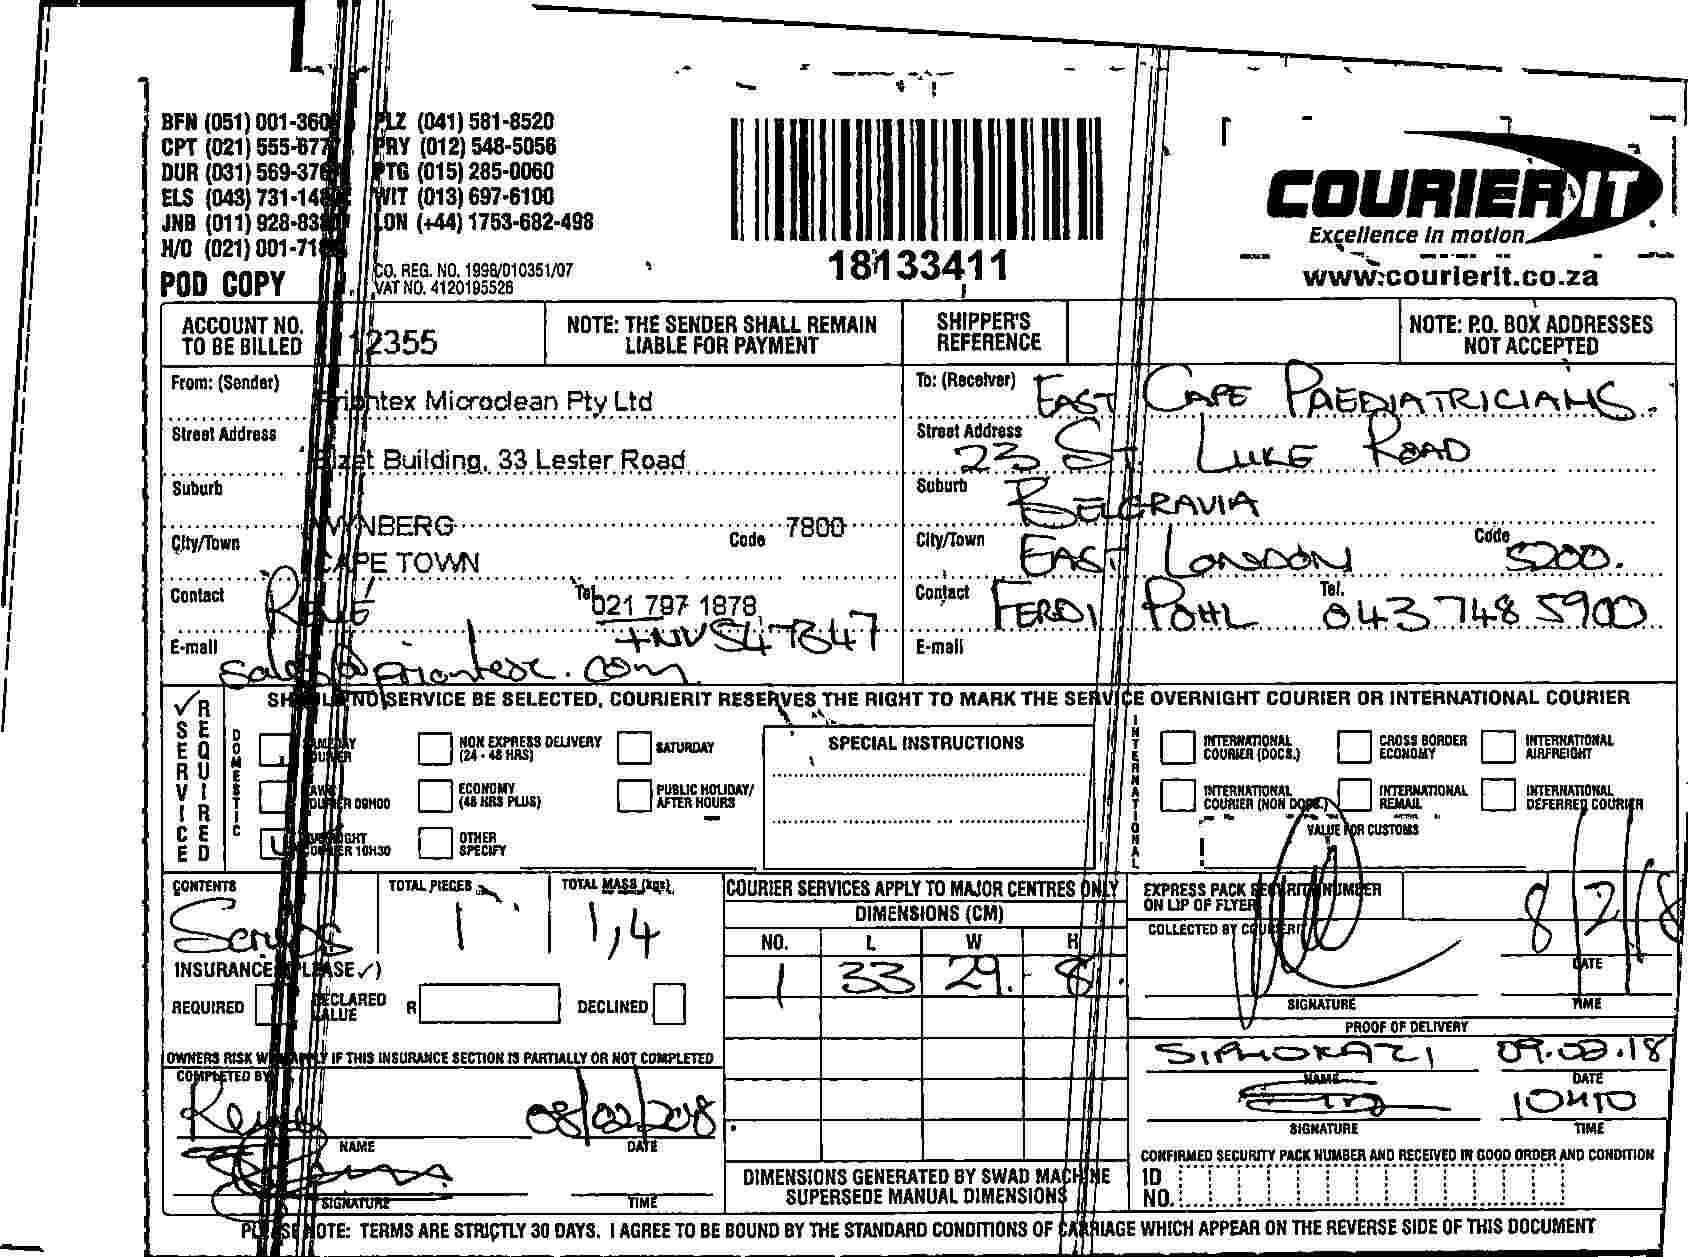 BFN (051) 001-360 PLZ (041) 581-8520
CPT (021) 555-677 PRY (012) 548-5056
DUR (031) 569-37 PTG (015) 285-0060
ELS (043) 731-14 WIT (013) 697-6100
JNB (011) 928-83 LON (+44) 1753-682-498
H/O (021) 001-71
POD COPY
CO. REG. NO. 1998/010351/07
VAT NO. 4120195526
18133411
COURIERIT
Excellence in motion
www.courierit.co.za
ACCOUNT NO. TO BE BILLED 12355
NOTE: THE SENDER SHALL REMAIN LIABLE FOR PAYMENT
SHIPPER'S REFERENCE
NOTE: P.O. BOX ADDRESSES NOT ACCEPTED
From: (Sender) Priontex Microclean Pty Ltd
Street Address Bizet Building, 33 Lester Road
Suburb
WYNBERG Code 7800
City/Town CAPE TOWN
Contact René Tel. 021 797 1878
INV547647
E-mail sales@priontex.com
To: (Receiver) EAST CAPE PAEDIATRICIANS.
Street Address 23 ST LUKE ROAD
Suburb BELGRAVIA
City/Town EAST LONDON Code 5200.
Contact FERDI POHL Tel. 043 748 5900
E-mail
SHOULD NO SERVICE BE SELECTED, COURIERIT RESERVES THE RIGHT TO MARK THE SERVICE OVERNIGHT COURIER OR INTERNATIONAL COURIER
✓ SERVICE REQUIRED
DOMESTIC
SAMEDAY COURIER
NON EXPRESS DELIVERY (24 - 48 HRS)
SATURDAY
DAWN COURIER 09H00
ECONOMY (48 HRS PLUS)
PUBLIC HOLIDAY/ AFTER HOURS
OVERNIGHT COURIER 10H30
OTHER SPECIFY
SPECIAL INSTRUCTIONS
INTERNATIONAL
INTERNATIONAL COURIER (DOCS.)
CROSS BORDER ECONOMY
INTERNATIONAL AIRFREIGHT
INTERNATIONAL COURIER (NON DOCS.)
INTERNATIONAL REMAIL
INTERNATIONAL DEFERRED COURIER
VALUE FOR CUSTOMS
CONTENTS Scrubs
TOTAL PIECES 1
TOTAL MASS (kgs) 1,4
INSURANCE (PLEASE ✓)
REQUIRED DECLARED VALUE R DECLINED
OWNERS RISK WILL APPLY IF THIS INSURANCE SECTION IS PARTIALLY OR NOT COMPLETED
COMPLETED BY
08/02/2018
NAME DATE
SIGNATURE TIME
COURIER SERVICES APPLY TO MAJOR CENTRES ONLY
DIMENSIONS (CM)
NO. L W H
1 33 29. 8
DIMENSIONS GENERATED BY SWAD MACHINE SUPERSEDE MANUAL DIMENSIONS
EXPRESS PACK SECURITY NUMBER ON LIP OF FLYER
COLLECTED BY COURIERIT
8/2/18
DATE
SIGNATURE TIME
PROOF OF DELIVERY
SIPHOKAZI 09.02.18
NAME DATE
10H10
SIGNATURE TIME
CONFIRMED SECURITY PACK NUMBER AND RECEIVED IN GOOD ORDER AND CONDITION
ID NO.
PLEASE NOTE: TERMS ARE STRICTLY 30 DAYS. I AGREE TO BE BOUND BY THE STANDARD CONDITIONS OF CARRIAGE WHICH APPEAR ON THE REVERSE SIDE OF THIS DOCUMENT